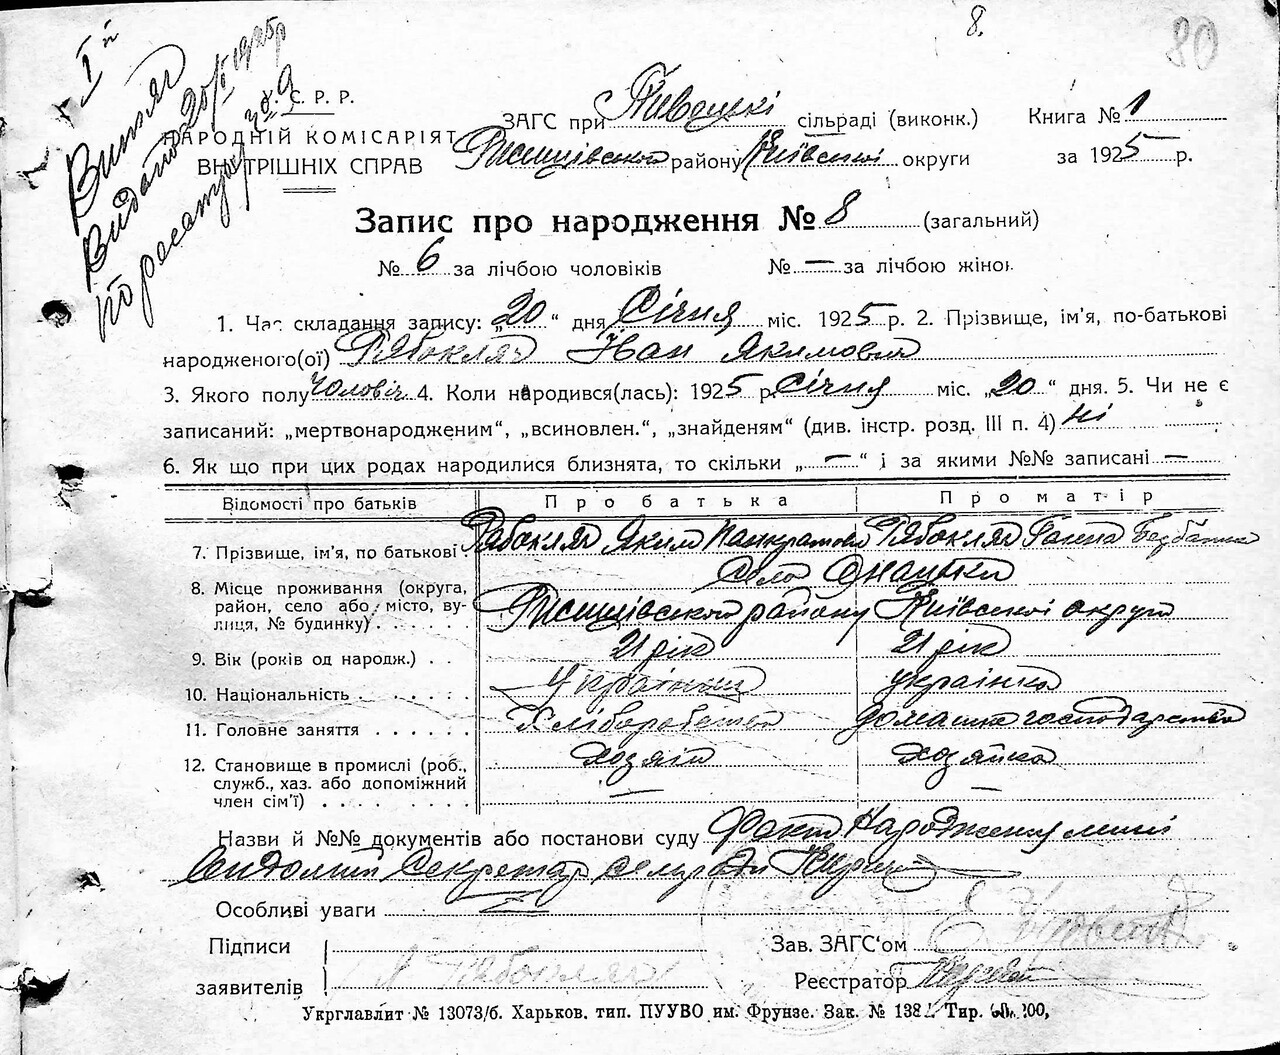 8.
80
І й
Витяг
Видано 20/І 1925р
по реєстру за № 9
С. Р. Р.
НАРОДНІЙ КОМІСАРІЯТ
ВНУТРІШНІХ СПРАВ
ЗАГС при сільраді (виконк.) Книга № 1
району Київської округи за 1925 р.
Запис про народження № 8 (загальний)
№ 6 за лічбою чоловіків № — за лічбою жінок
1. Час складання запису: „20“ дня Січня міс. 1925 р. 2. Прізвище, ім’я, по-батькові
народженого(ої) Рябокляч Іван Якимович
3. Якого полу чоловіч 4. Коли народився(лась): 1925 р. Січня міс. „20“ дня. 5. Чи не є
записаний: „мертвонародженим“, „всиновлен.“, „знайденям“ (див. інстр. розд. III п. 4) ні
6. Як що при цих родах народилися близнята, то скільки „—“ і за якими №№ записані —
Відомості про батьків Про батька Про матір
7. Прізвище, ім’я, по батькові Рабокляч Яким Панкратович Рябокляч Ганна
8. Місце проживання (округа, Село
район, село або місто, ву- району Київської округи
лиця, № будинку)
9. Вік (років од народж.) 21 рік 21 рік
10. Національність Українець українка
11. Головне заняття Хліборобство домашнє господарство
12. Становище в промислі (роб., хозяїн хозяйка
служб., хаз. або допоміжний — —
член сім’ї)
Назви й №№ документів або постанови суду Факт народження мині
Свидомий Секретар сельради
Особливі уваги
Підписи Зав. ЗАГС‘ом
заявителів Я Рябокляч Реєстратор
Укрглавліт № 13073/б. Харьков. тип. ПУУВО им. Фрунзе. Зак. № 138 Тир. 00,